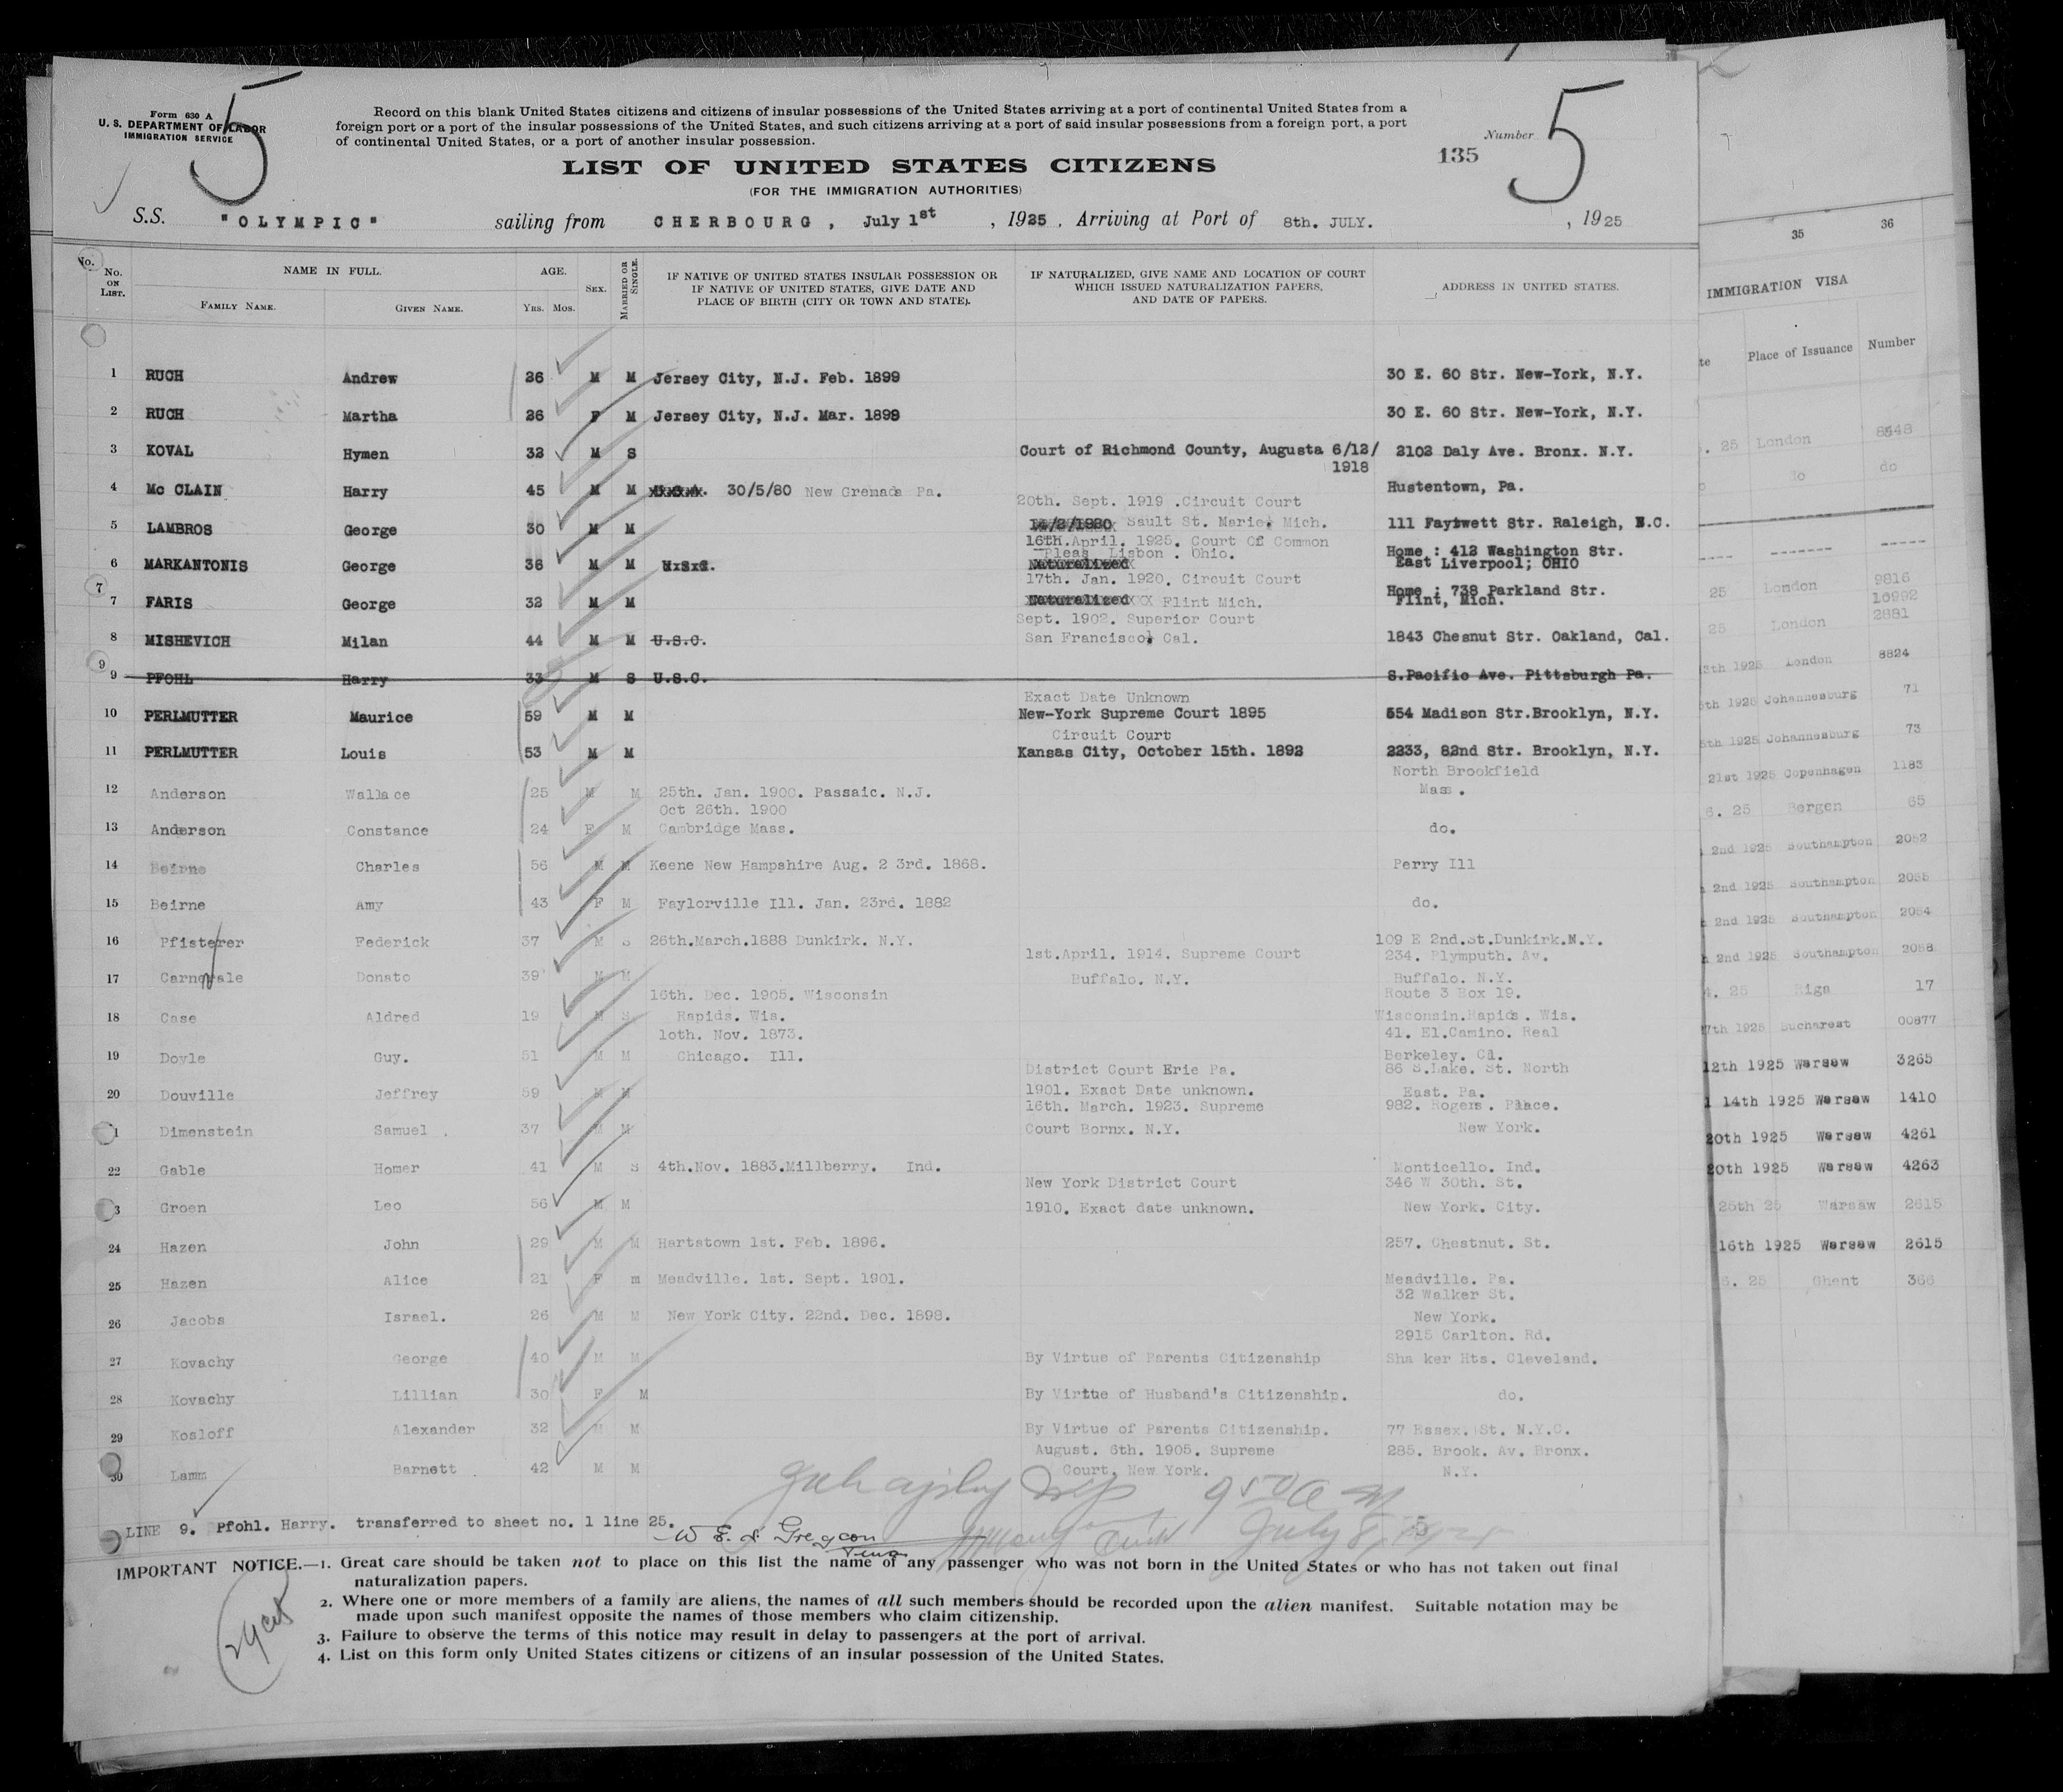 Form 630 A
U. S. DEPARTMENT OF LABOR
IMMIGRATION SERVICE
5
Record on this blank United States citizens and citizens of insular possessions of the United States arriving at a port of continental United States from a
foreign port or a port of the insular possessions of the United States, and such citizens arriving at a port of said insular possessions from a foreign port, a port
of continental United States, or a port of another insular possession.
Number 5
135
LIST OF UNITED STATES CITIZENS
(FOR THE IMMIGRATION AUTHORITIES)
S.S. "OLYMPIC" sailing from CHERBOURG, July 1st, 1925. Arriving at Port of 8th. JULY., 1925
No.
No. ON LIST. NAME IN FULL. AGE. SEX. MARRIED OR SINGLE. IF NATIVE OF UNITED STATES INSULAR POSSESSION OR IF NATIVE OF UNITED STATES, GIVE DATE AND PLACE OF BIRTH (CITY OR TOWN AND STATE). IF NATURALIZED, GIVE NAME AND LOCATION OF COURT WHICH ISSUED NATURALIZATION PAPERS, AND DATE OF PAPERS. ADDRESS IN UNITED STATES.
FAMILY NAME. GIVEN NAME. YRS. MOS.
1 RUCH Andrew 26 M M Jersey City, N.J. Feb. 1899 30 E. 60 Str. New-York, N.Y.
2 RUCH Martha 26 F M Jersey City, N.J. Mar. 1899 30 E. 60 Str. New-York, N.Y.
3 KOVAL Hymen 32 M S Court of Richmond County, Augusta 6/12/ 2102 Daly Ave. Bronx. N.Y.
1918
4 Mc CLAIN Harry 45 M M 30/5/80 New Grenada Pa. Hustentown, Pa.
20th. Sept. 1919 .Circuit Court
5 LAMBROS George 30 M M 14/2/1920 Sault St. Marie. Mich. 111 Faytwett Str. Raleigh, N.C.
16th.April. 1925. Court Of Common
Pleas Lisbon . Ohio. Home : 412 Washington Str.
6 MARKANTONIS George 36 M M U.S.C. Naturalized East Liverpool; OHIO
17th. Jan. 1920. Circuit Court
7 FARIS George 32 M M Naturalized XXX Flint Mich. Home : 738 Parkland Str.
Flint, Mich.
Sept. 1902. Superior Court
8 MISHEVICH Milan 44 M M U.S.C. San Francisco. Cal. 1843 Chesnut Str. Oakland, Cal.
9 PFOHL Harry 33 M S U.S.C. S.Pacific Ave. Pittsburgh Pa.
Exact Date Unknown
10 PERLMUTTER Maurice 59 M M New-York Supreme Court 1895 554 Madison Str.Brooklyn, N.Y.
Circuit Court
11 PERLMUTTER Louis 53 M M Kansas City, October 15th. 1892 2233, 82nd Str. Brooklyn, N.Y.
North Brookfield
12 Anderson Wallace 25 M M 25th. Jan. 1900. Passaic. N.J. Mass.
Oct 26th. 1900
13 Anderson Constance 24 F M Cambridge Mass. do.
14 Beirne Charles 56 M M Keene New Hampshire Aug. 2 3rd. 1868. Perry Ill
15 Beirne Amy 43 F M Faylorville Ill. Jan. 23rd. 1882 do.
16 Pfisterer Federick 37 M S 26th.March.1888 Dunkirk. N.Y. 109 E 2nd.St.Dunkirk.N.Y.
1st.April. 1914. Supreme Court 234. Plymputh. Av.
17 Carnovale Donato 39 M M Buffalo. N.Y. Buffalo. N.Y.
16th. Dec. 1905. Wisconsin Route 3 Box 19.
18 Case Aldred 19 M S Rapids. Wis. Wisconsin.Rapids. Wis.
10th. Nov. 1873. 41. El.Camino. Real
19 Doyle Guy. 51 M M Chicago. Ill. Berkeley. Cal.
District Court Erie Pa. 86 S.Lake. St. North
20 Douville Jeffrey 59 M M 1901. Exact Date unknown. East. Pa.
16th. March. 1923. Supreme 982. Rogers. Place.
1 Dimenstein Samuel . 37 M M Court Bornx. N.Y. New York.
22 Gable Homer 41 M S 4th.Nov. 1883.Millberry. Ind. Monticello. Ind.
New York District Court 346 W 30th. St.
3 Groen Leo 56 M M 1910. Exact date unknown. New York. City.
24 Hazen John 29 M M Hartstown 1st. Feb. 1896. 257. Chestnut. St.
25 Hazen Alice 21 F m Meadville. 1st. Sept. 1901. Meadville. Pa.
32 Walker St.
26 Jacobs Israel. 26 M M New York City. 22nd. Dec. 1898. New York.
2915 Carlton. Rd.
27 Kovachy George 40 M M By Virtue of Parents Citizenship Sha ker Hts. Cleveland.
28 Kovachy Lillian 30 F M By Virtue of Husband's Citizenship. do.
29 Kosloff Alexander 32 M M By Virtue of Parents Citizenship. 77 Essex. St. N.Y.C.
August. 6th. 1905. Supreme 285. Brook. Av. Bronx.
30 Lamm Barnett 42 M M Court, New York. N.Y.
9 50 A M
LINE 9. Pfohl. Harry. transferred to sheet no. 1 line 25.
July 8,
IMPORTANT NOTICE.—1. Great care should be taken not to place on this list the name of any passenger who was not born in the United States or who has not taken out final
naturalization papers.
2. Where one or more members of a family are aliens, the names of all such members should be recorded upon the alien manifest. Suitable notation may be
made upon such manifest opposite the names of those members who claim citizenship.
3. Failure to observe the terms of this notice may result in delay to passengers at the port of arrival.
4. List on this form only United States citizens or citizens of an insular possession of the United States.
35 36
IMMIGRATION VISA
te Place of Issuance Number
. 25 London 8448
do do
25 London 9816
10992
2881
25 London
8th 1925 London 8824
5th 1925 Johannesburg 71
5th 1925 Johannesburg 73
21st 1925 Copenhagen 1183
6. 25 Bergen 65
2nd 1925 Southampton 2052
2nd 1925 Southampton 2055
2nd 1925 Southampton 2054
2nd 1925 Southampton 2058
. 25 Riga 17
7th 1925 Bucharest 00877
12th 1925 Warsaw 3265
14th 1925 Warsaw 1410
20th 1925 Warsaw 4261
20th 1925 Warsaw 4263
25th 25 Warsaw 2615
16th 1925 Warsaw 2615
6. 25 Ghent 366